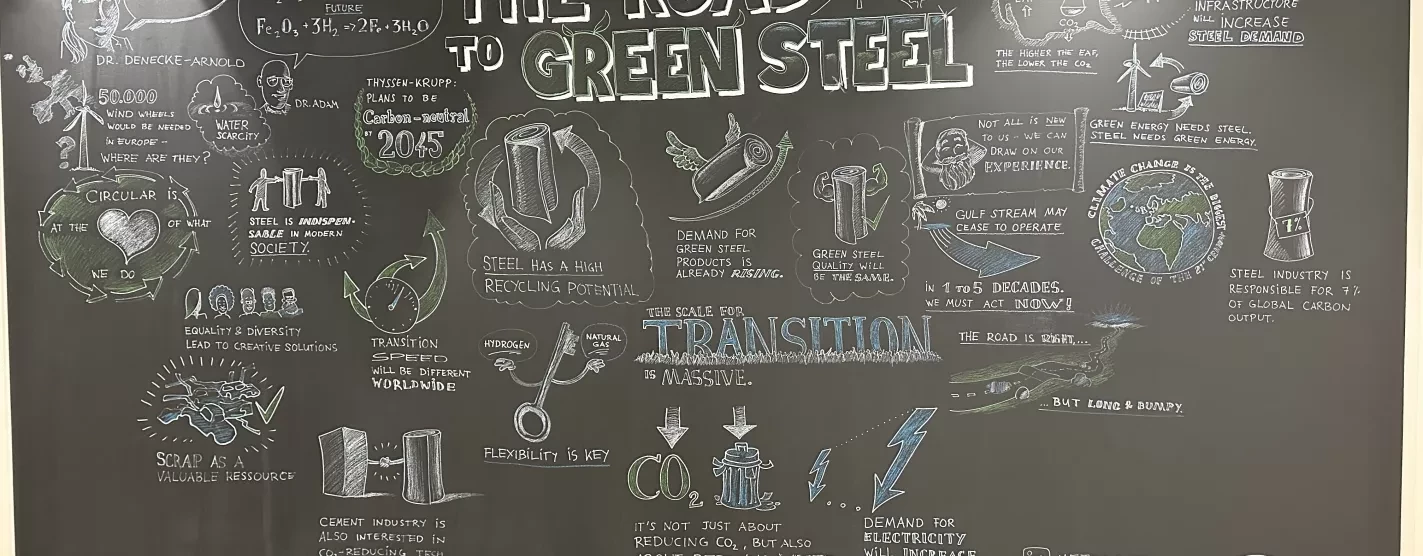 FUTURE
Fe2O3+3H2 => 2Fe+3H2O
DR. DENECKE-ARNOLD
THE ROAD
TO GREEN STEEL
INFRASTRUCTURE
WILL INCREASE
STEEL DEMAND
CO2
THE HIGHER THE EAF,
THE LOWER THE CO2
50.000
WIND WHEELS
WOULD BE NEEDED
IN EUROPE -
WHERE ARE THEY?
WATER
SCARCITY
DR. ADAM
THYSSEN-KRUPP:
PLANS TO BE
Carbon-neutral
BY 2045
NOT ALL IS NEW
TO US - WE CAN
DRAW ON OUR
EXPERIENCE.
GREEN ENERGY NEEDS STEEL.
STEEL NEEDS GREEN ENERGY.
CIRCULAR IS
AT THE
OF WHAT
WE DO
STEEL IS INDISPEN-
SABLE IN MODERN
SOCIETY.
STEEL HAS A HIGH
RECYCLING POTENTIAL
DEMAND FOR
GREEN STEEL
PRODUCTS IS
ALREADY RISING.
GREEN STEEL
QUALITY WILL
BE THE SAME.
GULF STREAM MAY
CEASE TO OPERATE
IN 1 TO 5 DECADES.
WE MUST ACT NOW!
CLIMATE CHANGE IS THE BIGGEST
CHALLENGE OF THE 21
7%
STEEL INDUSTRY IS
RESPONSIBLE FOR 7%
OF GLOBAL CARBON
OUTPUT.
EQUALITY & DIVERSITY
LEAD TO CREATIVE SOLUTIONS
TRANSITION
SPEED
WILL BE DIFFERENT
WORLDWIDE
HYDROGEN
NATURAL
GAS
FLEXIBILITY IS KEY
THE SCALE FOR
TRANSITION
IS MASSIVE.
THE ROAD IS RIGHT,...
...BUT LONG & BUMPY.
SCRAP AS A
VALUABLE RESSOURCE
CEMENT INDUSTRY IS
ALSO INTERESTED IN
CO2-REDUCING TECH
CO2
IT'S NOT JUST ABOUT
REDUCING CO2, BUT ALSO
DEMAND FOR
ELECTRICITY
WILL INCREASE